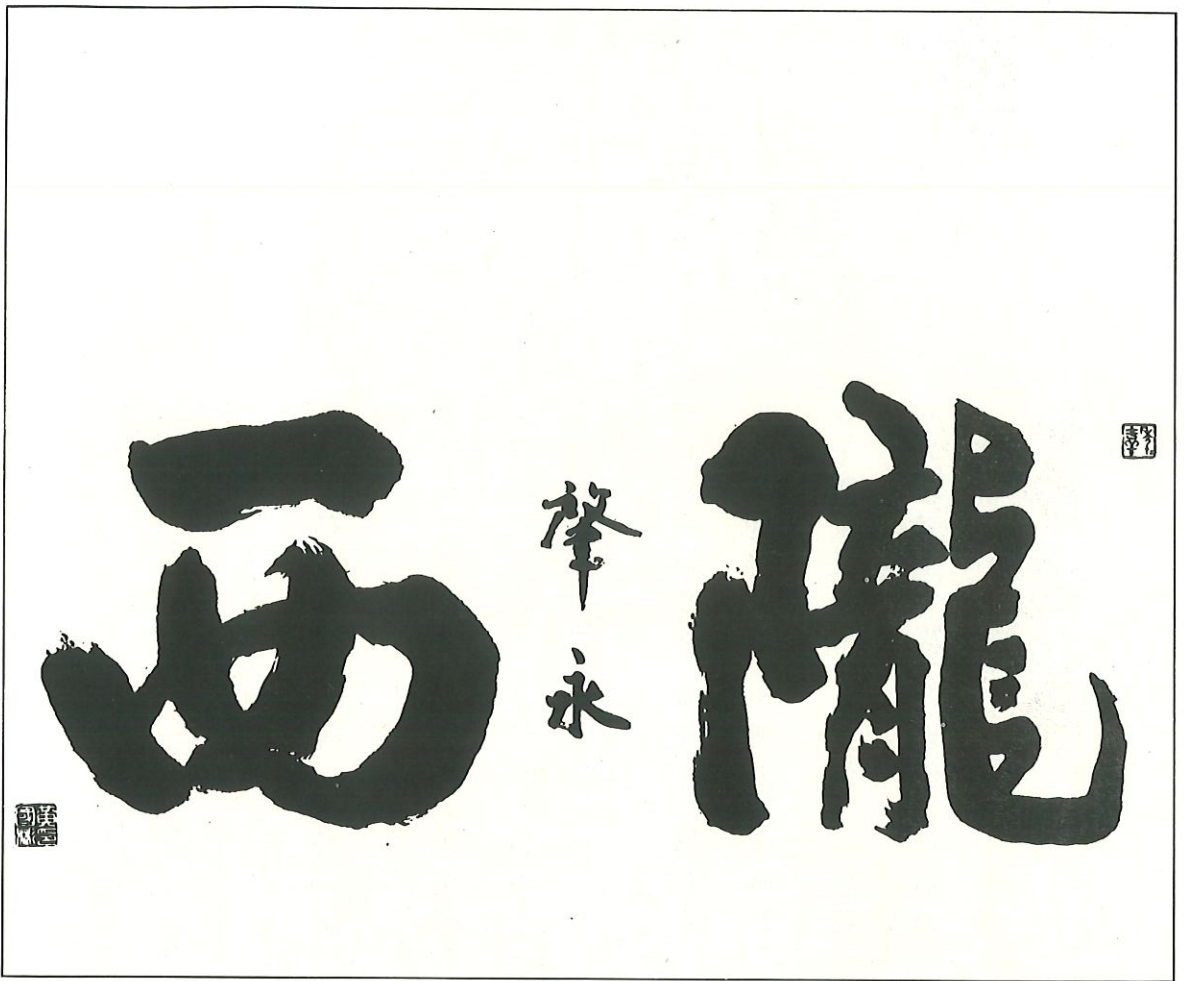 隴西
肇永